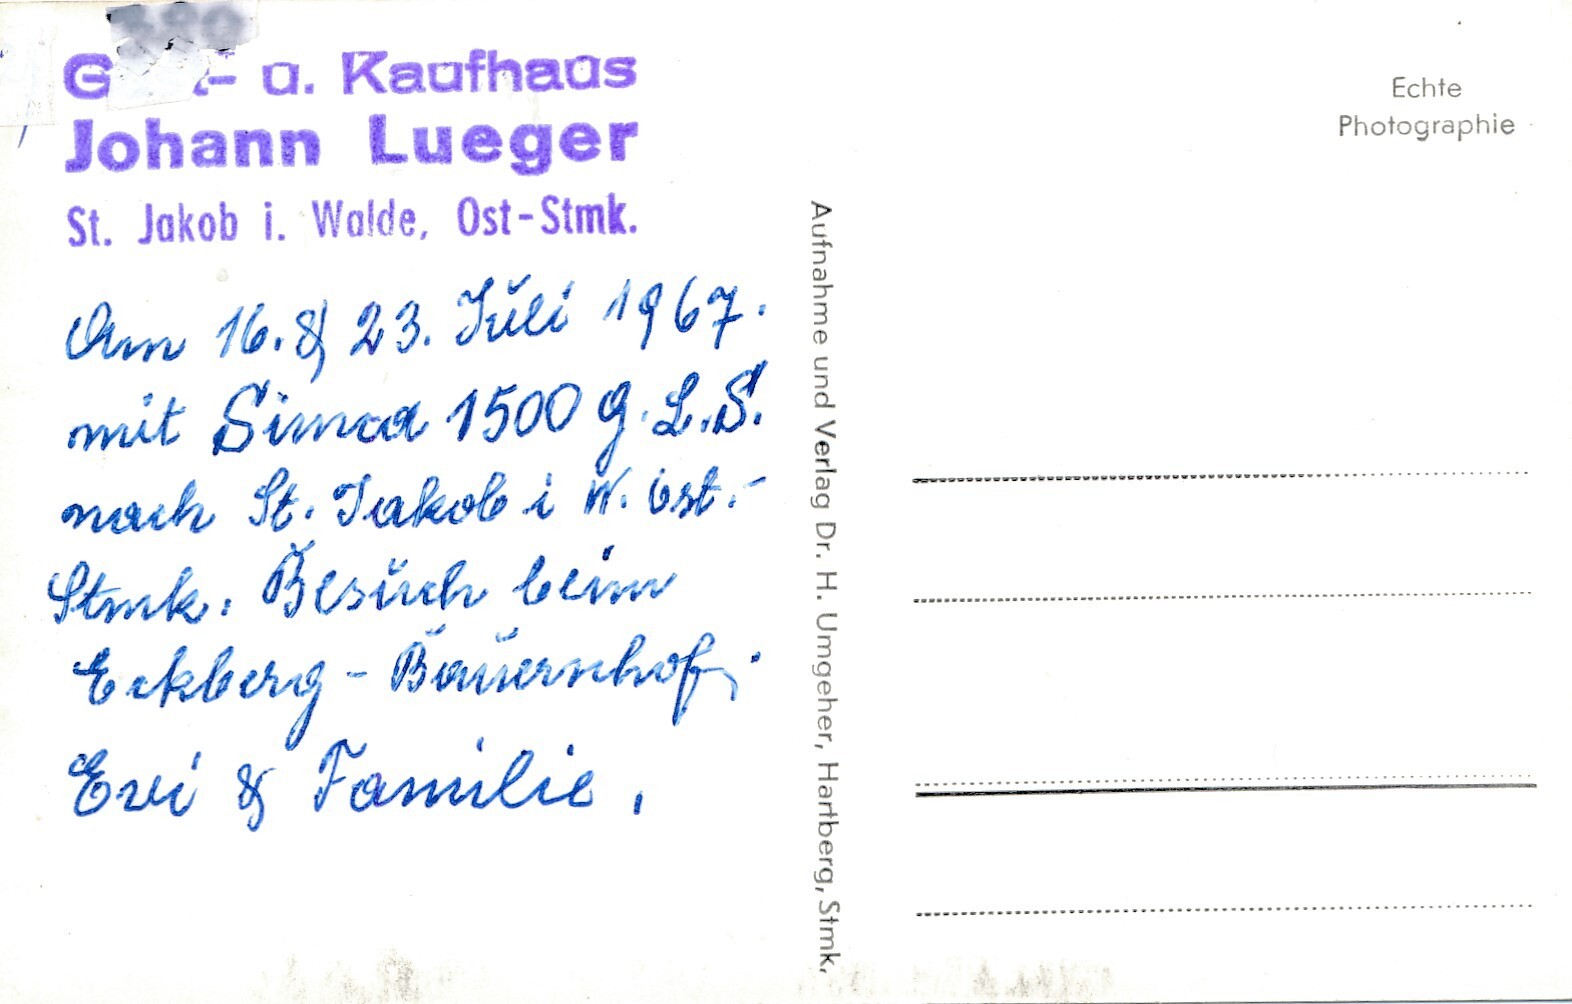 - u. Kaufhaus
Johann Lueger
St. Jakob i. Walde, Ost-Stmk.
Am 16. & 23. Juli 1967.
mit Simca 1500 G. L. S.
nach St. Jakob i W. öst.-
Stmk. Besuch beim
Eckberg - Bauernhof.
Evi & Familie.
Aufnahme und Verlag Dr. H. Umgeher, Hartberg, Stmk.
Echte
Photographie